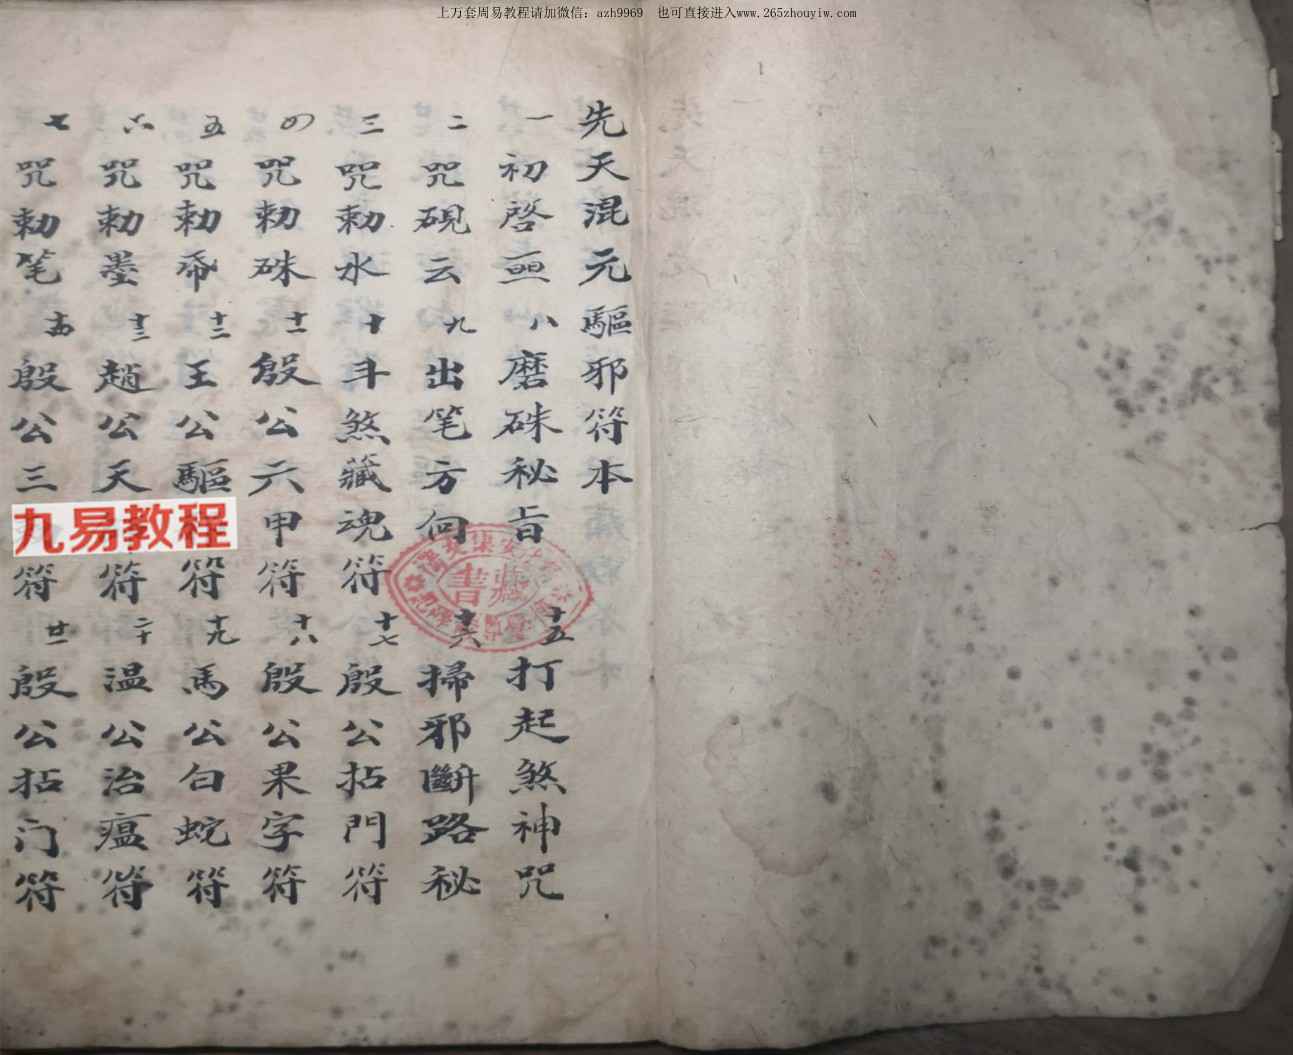 上万套周易教程请加微信：azh9969 也可直接进入www.265zhouyiw.com
先天混元驅邪符本
一 初啓 八 磨硃秘旨 十五 打起煞神咒
二 咒硯云 九 出笔方向 十六 掃邪斷路秘
三 咒勅水 十 斗煞藏魂符 十七 殷公拈門符
四 咒勅硃 十一 殷公六甲符 十八 殷公果字符
五 咒勅帋 十二 王公驅 符 十九 馬公白蛇符
六 咒勅墨 十三 趙公天 符 二十 温公治瘟符
七 咒勅笔 十四 殷公三 符 廿一 殷公拈门符
九易教程
藏書